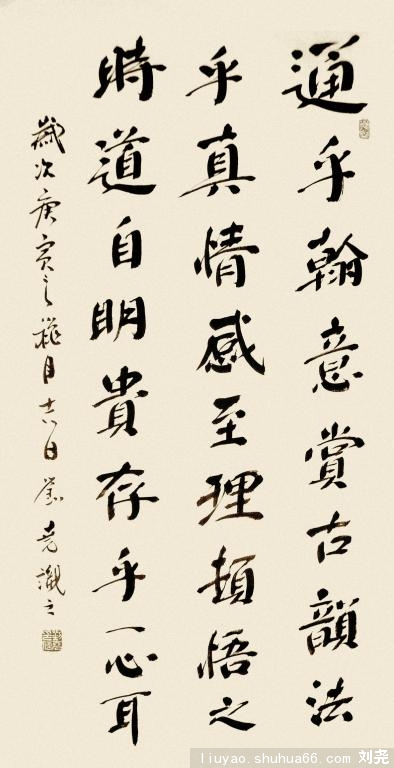 通乎翰意賞古韻法
乎真情感至理頓悟之
時道自明貴存乎一心耳
歲次庚寅之桃月十六日劉堯識之
liuyao.shuhua66.com 刘尧